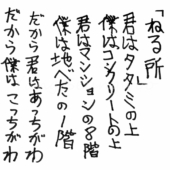 「ねる所」
君はタタミの上
僕はコンクリートの上
君はマンションの8階
僕は地べたの1階
だから君はあっちがわ
だから僕はこっちがわ